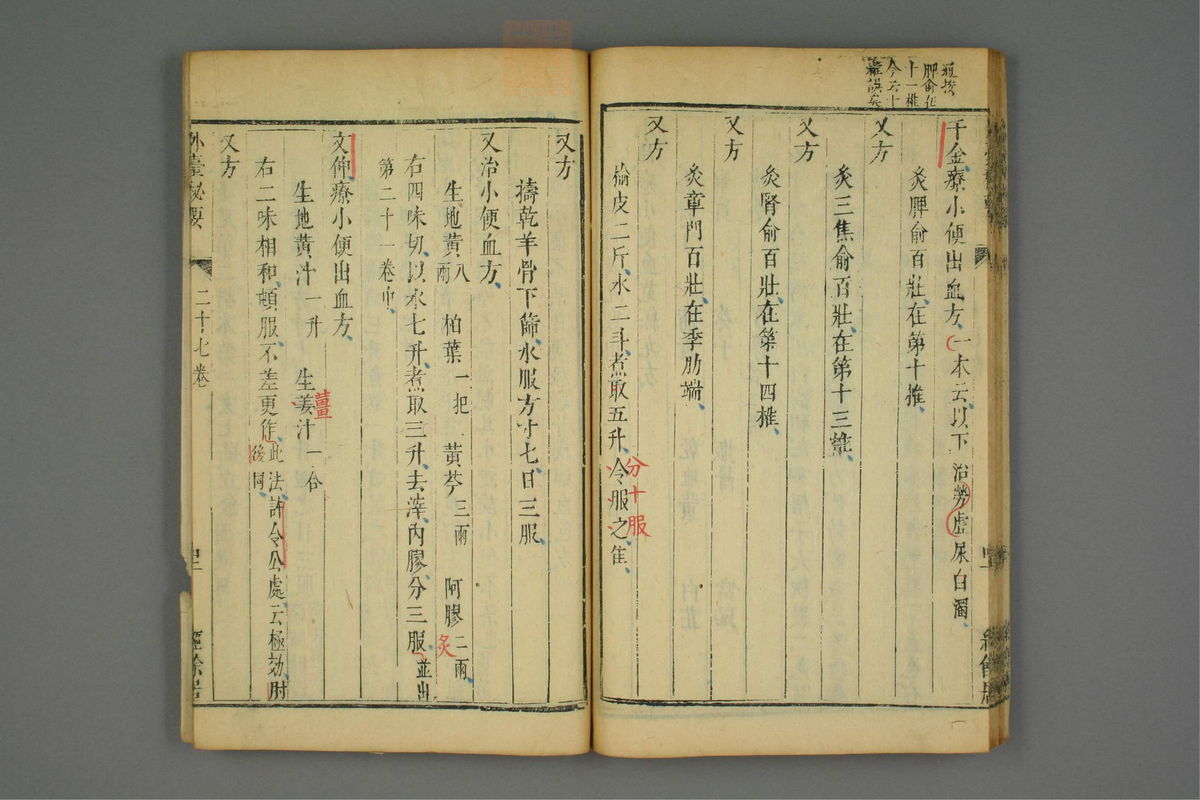 脾俞在
十一椎
今云十
椎誤矣
千金療小便出血方一本云以下治勞虛尿白濁
灸脾俞百壯在第十椎
又方
灸三焦俞百壯在第十三椎
又方
灸腎俞百壯在第十四椎
又方
灸章門百壯在季肋端
又方
榆皮二斤水二斗煮取五升令服之隹
分十服
又方
擣乾羊骨下篩水服方寸七日三服
又治小便血方
生地黃八兩 柏葉一把 黃芩三兩 阿膠二兩
炙
右四味切以水七升煮取三升去滓內膠分三服並出
第二十一卷中
文仲療小便出血方
生地黃汁一升 生姜汁一合
薑
右二味相和頓服不差更作此法許令公處云極効肘
後同
又方
外臺祕要
二十七卷
經餘居